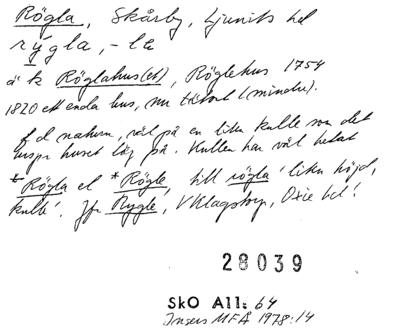 Rögla, Skårby, Ljunits hd
rýgla, -la
ä k Röglahus(et), Röglehus 1754
1820 ett enda hus, nu tätort (mindre).
f d naturn, väl på en liten kulle som det
urspr huset låg på. Kullen har väl hetat
*Rögla el *Rögle, till rögla 'liten höjd,
kulle'. Jfr Rygle, V Klagstorp, Oxie hd!
28039
SkO All: 64
Insers MFÅ 1978:14